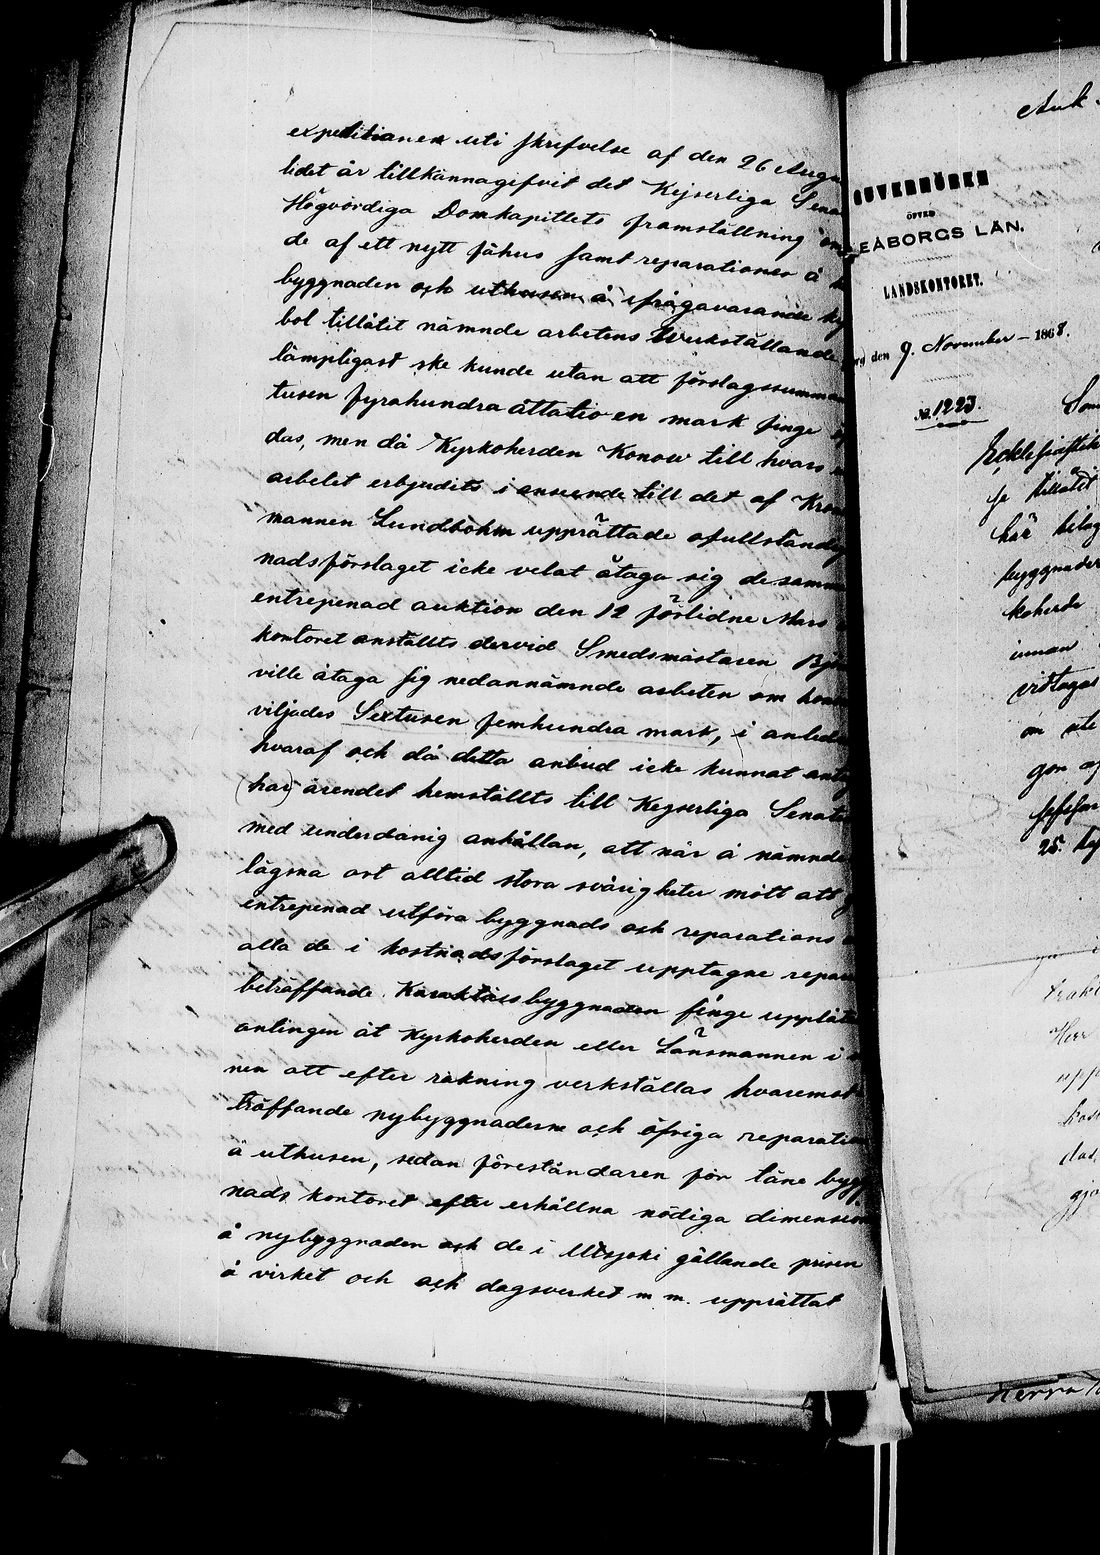 expeditionen uti skrifvelse af den 26 Augu
lidet år tillkännagifvit det Kejserliga Sena
Högvördiga Domkapitlets framställning om
de af ett nytt fähus samt reparationer å
byggnaden och uthusen å ifrågavarande
bol tillåtit nämnde arbetens Verkställande
lämpligast ske kunde utan att förslagssumman
tusen fyrahundra åttatio en mark finge
das, men då Kyrkoherden Konow till hvars
arbetet erbjudits i anseende till det af Kron
mannen Lundbohm upprättade ofullständig
nadsförslaget icke velat åtaga sig desamma
entrepenad auktion den 12 förlidne Mars
kontoret anställts dervid Smedsmästaren Bj
ville åtaga sig nedannämnde arbeten om hono
viljades Sextusen femhundra mark, i anled
hvaraf och då detta anbud icke kunnat anta
(har) ärendet hemställts till Kejserliga Senate
med underdånig anhållan, att när å nämnde
lägsna ort alltid stora svårigheter mött att
entrepenad utföra byggnads och reparations
alla de i kostnadsförslaget upptagne repara
beträffande Karaktärsbyggnaden finge upplåta
antingen åt Kyrkoherden eller Länsmannen i
nen att efter räkning verkställas hvaremot
träffande nybyggnaderne och öfriga reparatio
å uthusen, sedan föreståndaren för läne bygg
nads kontoret efter erhållna nödiga dimension
å nybyggnaden och de i Utsjoki gällande prisen
å virket och och dagsverket m m. upprättat
GUVERNÖREN
ÖFVER
LEÅBORGS LÄN.
LANDSKONTORET.
den 9. November – 1868.
No 1223.
Som
Ecklesiastik
je tillåtit
här bilag
byggnader
koherde
innan
vidtagas
om
gon af
25.
Herr
upp
kost
das,
gjo
Herra